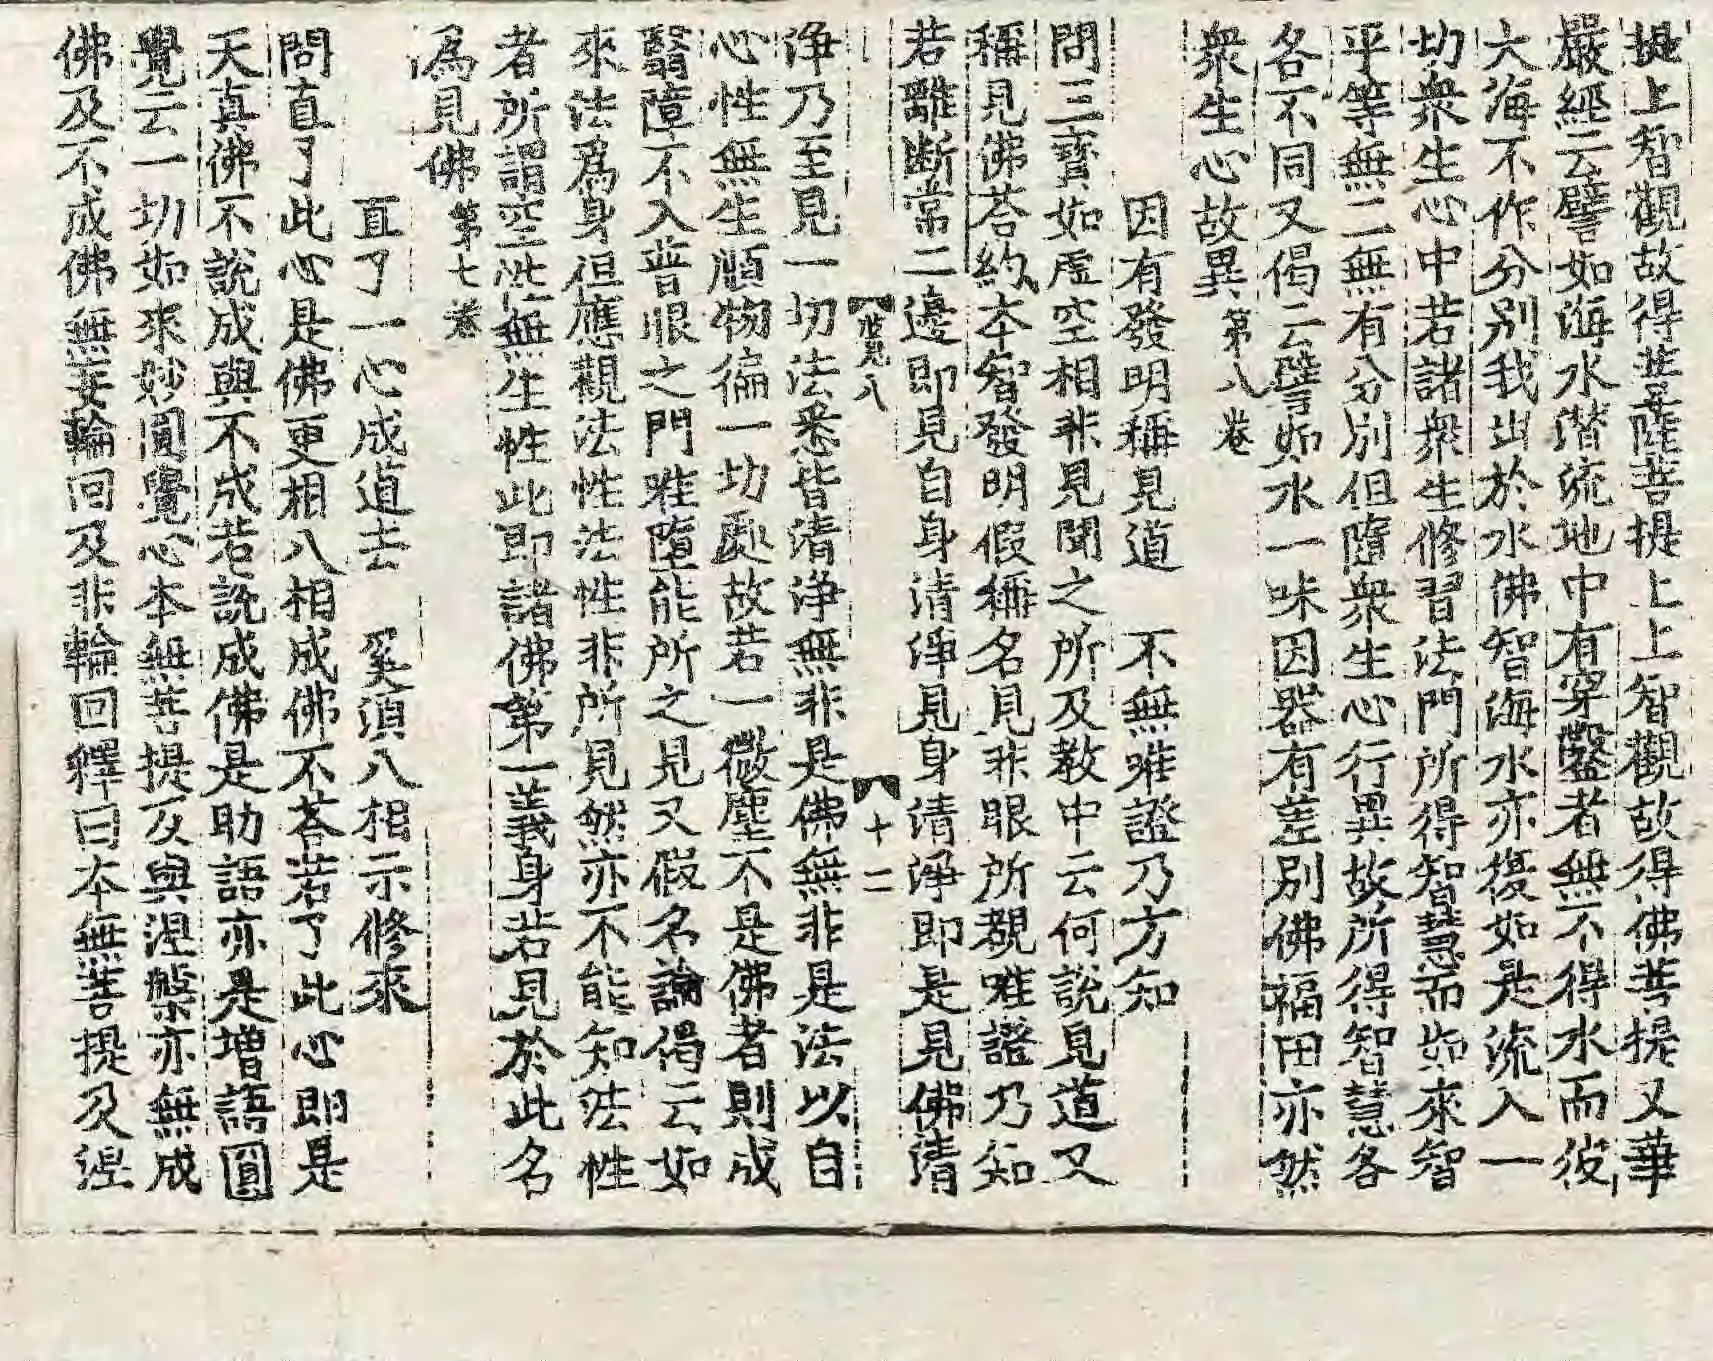 提上智觀故得菩薩菩提上上智觀故得佛菩提又華
嚴經云譬如海水潛流地中有穿鑿者無不得水而彼
大海不作分別我出於水佛智海水亦復如是流入一
切衆生心中若諸衆生修習法門所得智慧而如來智
平等無二無有分別但隨衆生心行異故所得智慧各
各不同又偈云譬如水一味因器有差別佛福田亦然
衆生心故異第八卷
因有發明稱見道　不無唯證乃方知
問三寶如虛空相非見聞之所及教中云何說見道又
稱見佛荅約本智發明假稱名見非眼所覩唯證乃知
若離断常二邊即見自身清淨見身清淨即是見佛清
八
十二
淨乃至見一切法悉皆清淨無非是佛無非是法以自
心性無生順物徧一切處故若一微塵不是佛者則成
翳障不入普眼之門唯墮能所之見又假名論偈云如
來法爲身但應觀法性法性非所見然亦不能知法性
者所謂空此無生性此即諸佛第一義身若見於此名
為見佛第七卷
直了一心成道去　奚須八相示修來
問直了此心是佛更相八相成佛不荅若了此心即是
天真佛不說成與不成若說成佛是助語亦是增語圓
覺云一切如來妙圓覺心本無菩提及與涅槃亦無成
佛及不成佛無妄輪回及非輪回釋曰本無菩提及涅